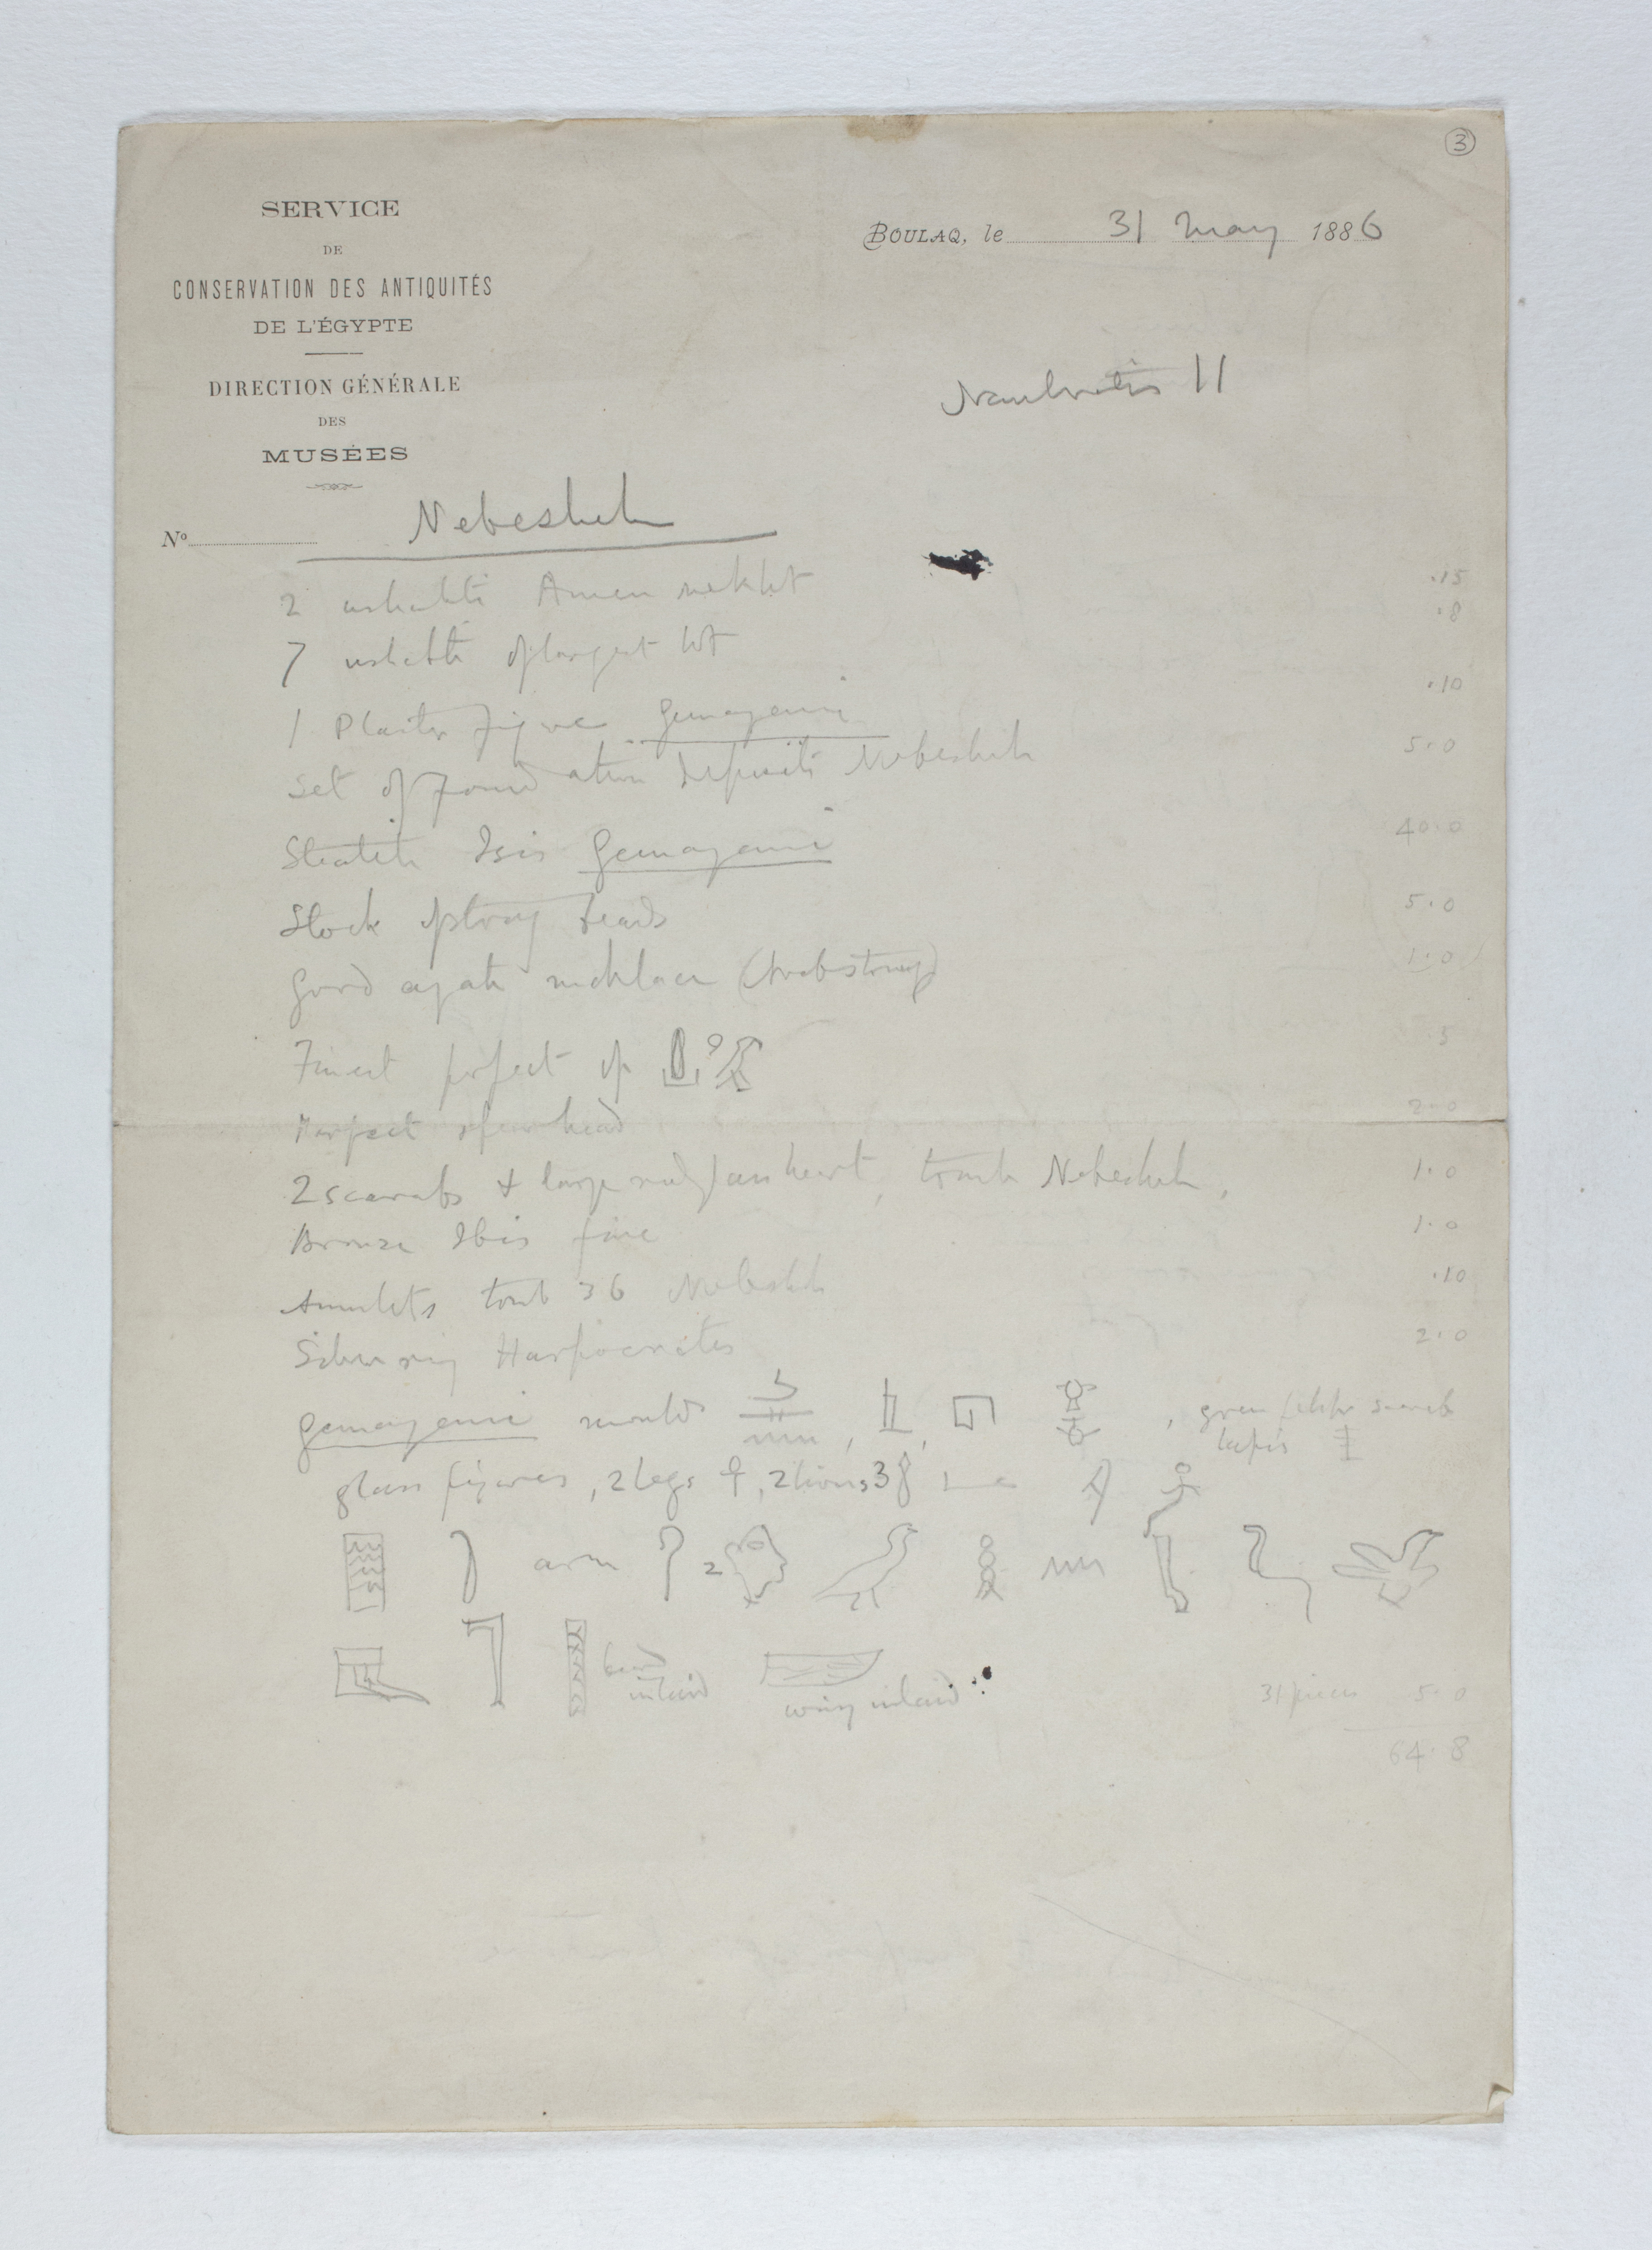 3
SERVICE
DE
CONSERVATION DES ANTIQUITÉS
DE L'ÉGYPTE
DIRECTION GÉNÉRALE
DES
MUSÉES
BOULAQ, le 31 May 1886
Naukratis II
Nº
Nebesheh
2 ushabti Amen nekht .15
7 ushabti of largest lot .8
1 Plaster figure Gemayemi .10
Set of Foundation deposits Nebesheh 5.0
Steatite Isis Gemayemi 40.0
Stock of stray beads 5.0
Good agate necklace (Arab string) 1.0
Finest perfect of .5
Perfect spearhead 2.0
2 scarabs & large heart, tomb Nebesheh, 1.0
Bronze Ibis fine 1.0
Amulets tomb 36 Nebesheh .10
Silver ring Harpocrates 2.0
Gemayemi moulds , , , green scarab
lapis
glass figures, 2 legs , 2 lions 3
arm 2
beard
inlaid
wing inlaid
31 pieces 5.0
64.8